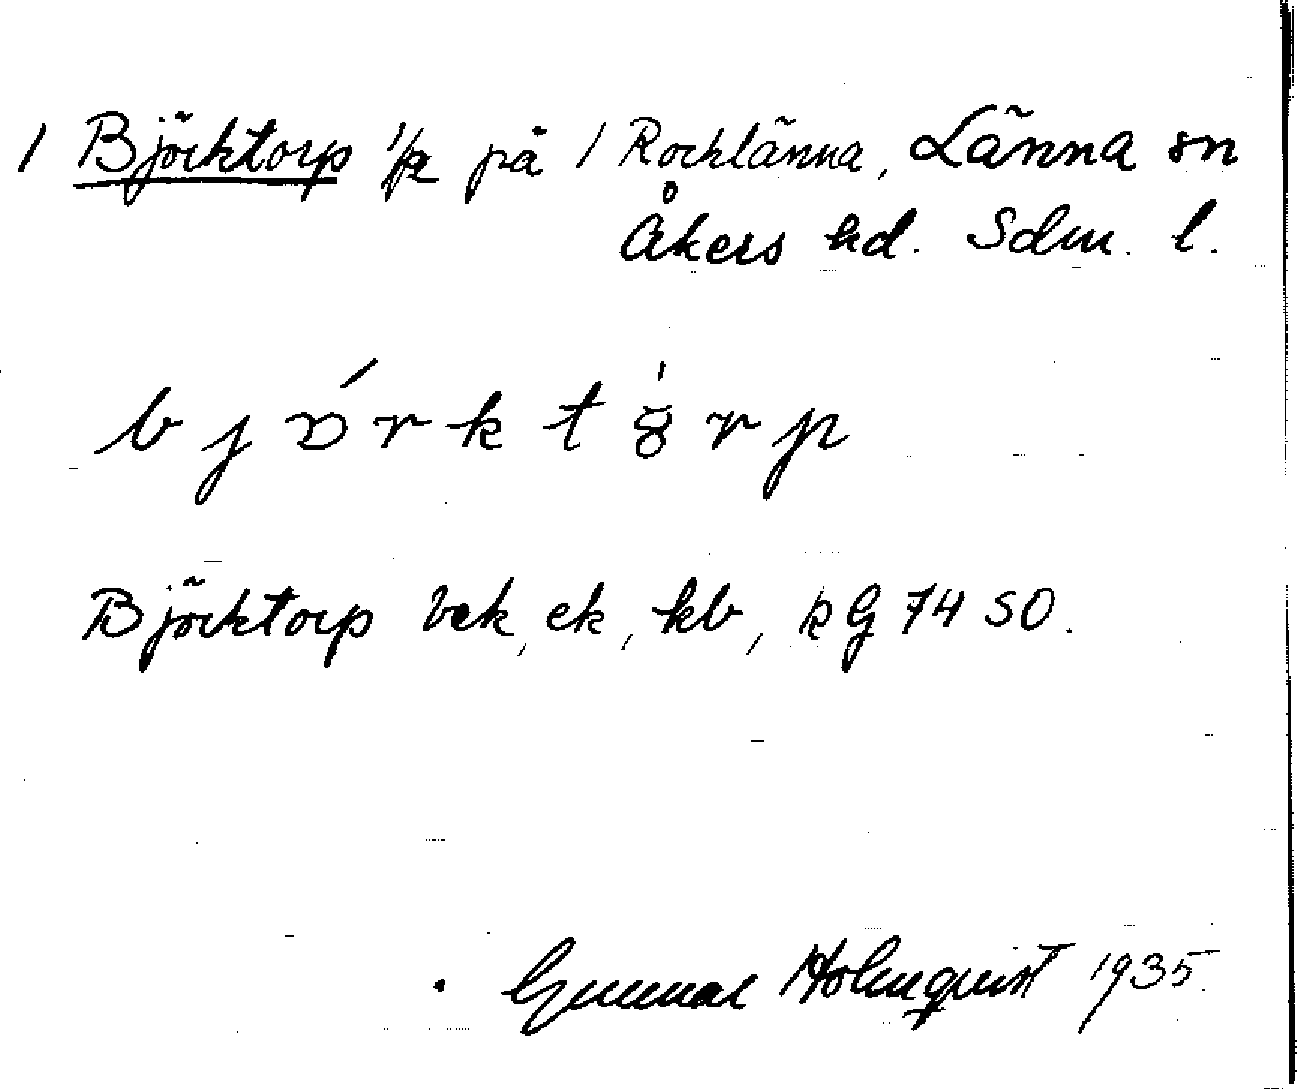 / Björktorp 1/2 på / Rocklänna, Länna sn
Åkers hd. Sdm. l.
Björktorp bek, ek, kb, kG 74 SO.
Gunnar Holmquist 1935.